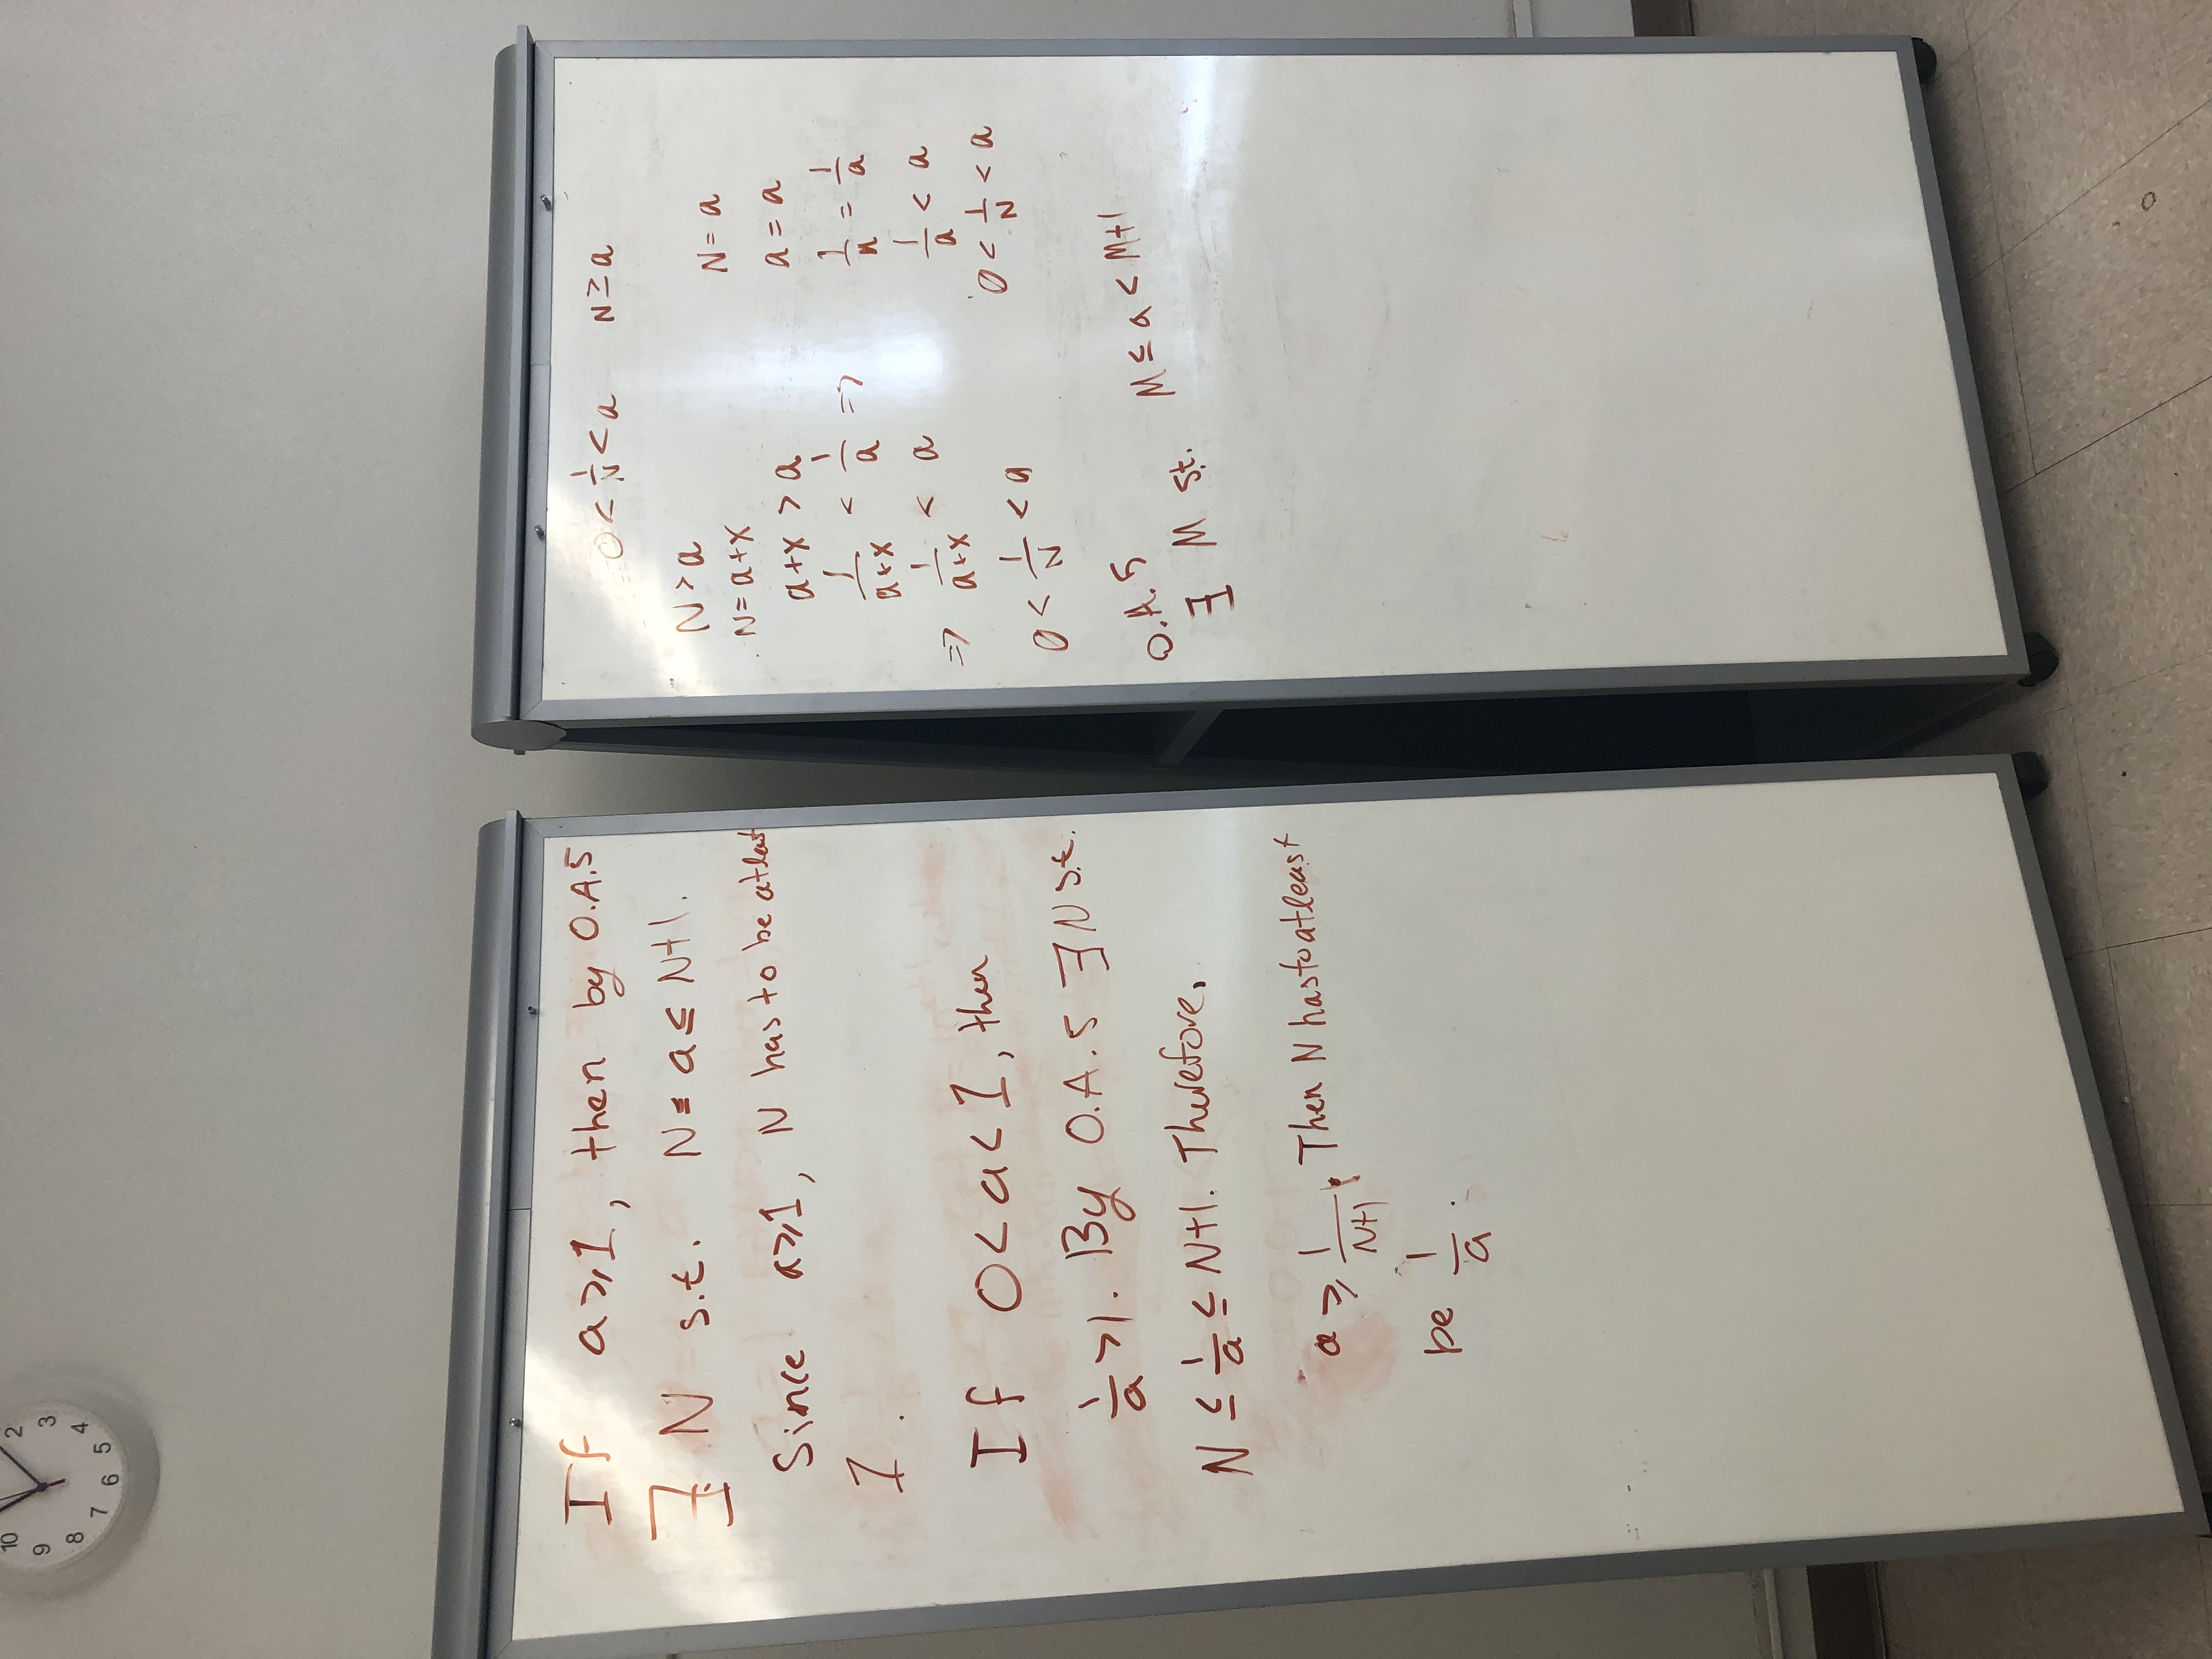 10
9
8
7
6
5
4
3
2
If a ⩾ 1, then by O.A.5
∃ N s.t. N ≤ a ≤ N+1.
Since a ⩾ 1, N has to be atleast
1.
If 0 < a < 1, then
1/a > 1. By O.A.5 ∃ N s.t.
N ≤ 1/a ≤ N+1. Therefore,
a ⩾ 1/(N+1). Then N has to at least
be 1/a.
0 < 1/N < a N ≥ a
N > a
N = a+x
a+x > a
1/(a+x) < 1/a ⇒
⇒ 1/(a+x) < a
0 < 1/N < a
N = a
a = a
1/a = 1/a
1/a < a
0 < 1/N < a
O.A.5
∃ M st. M ≤ a < M+1